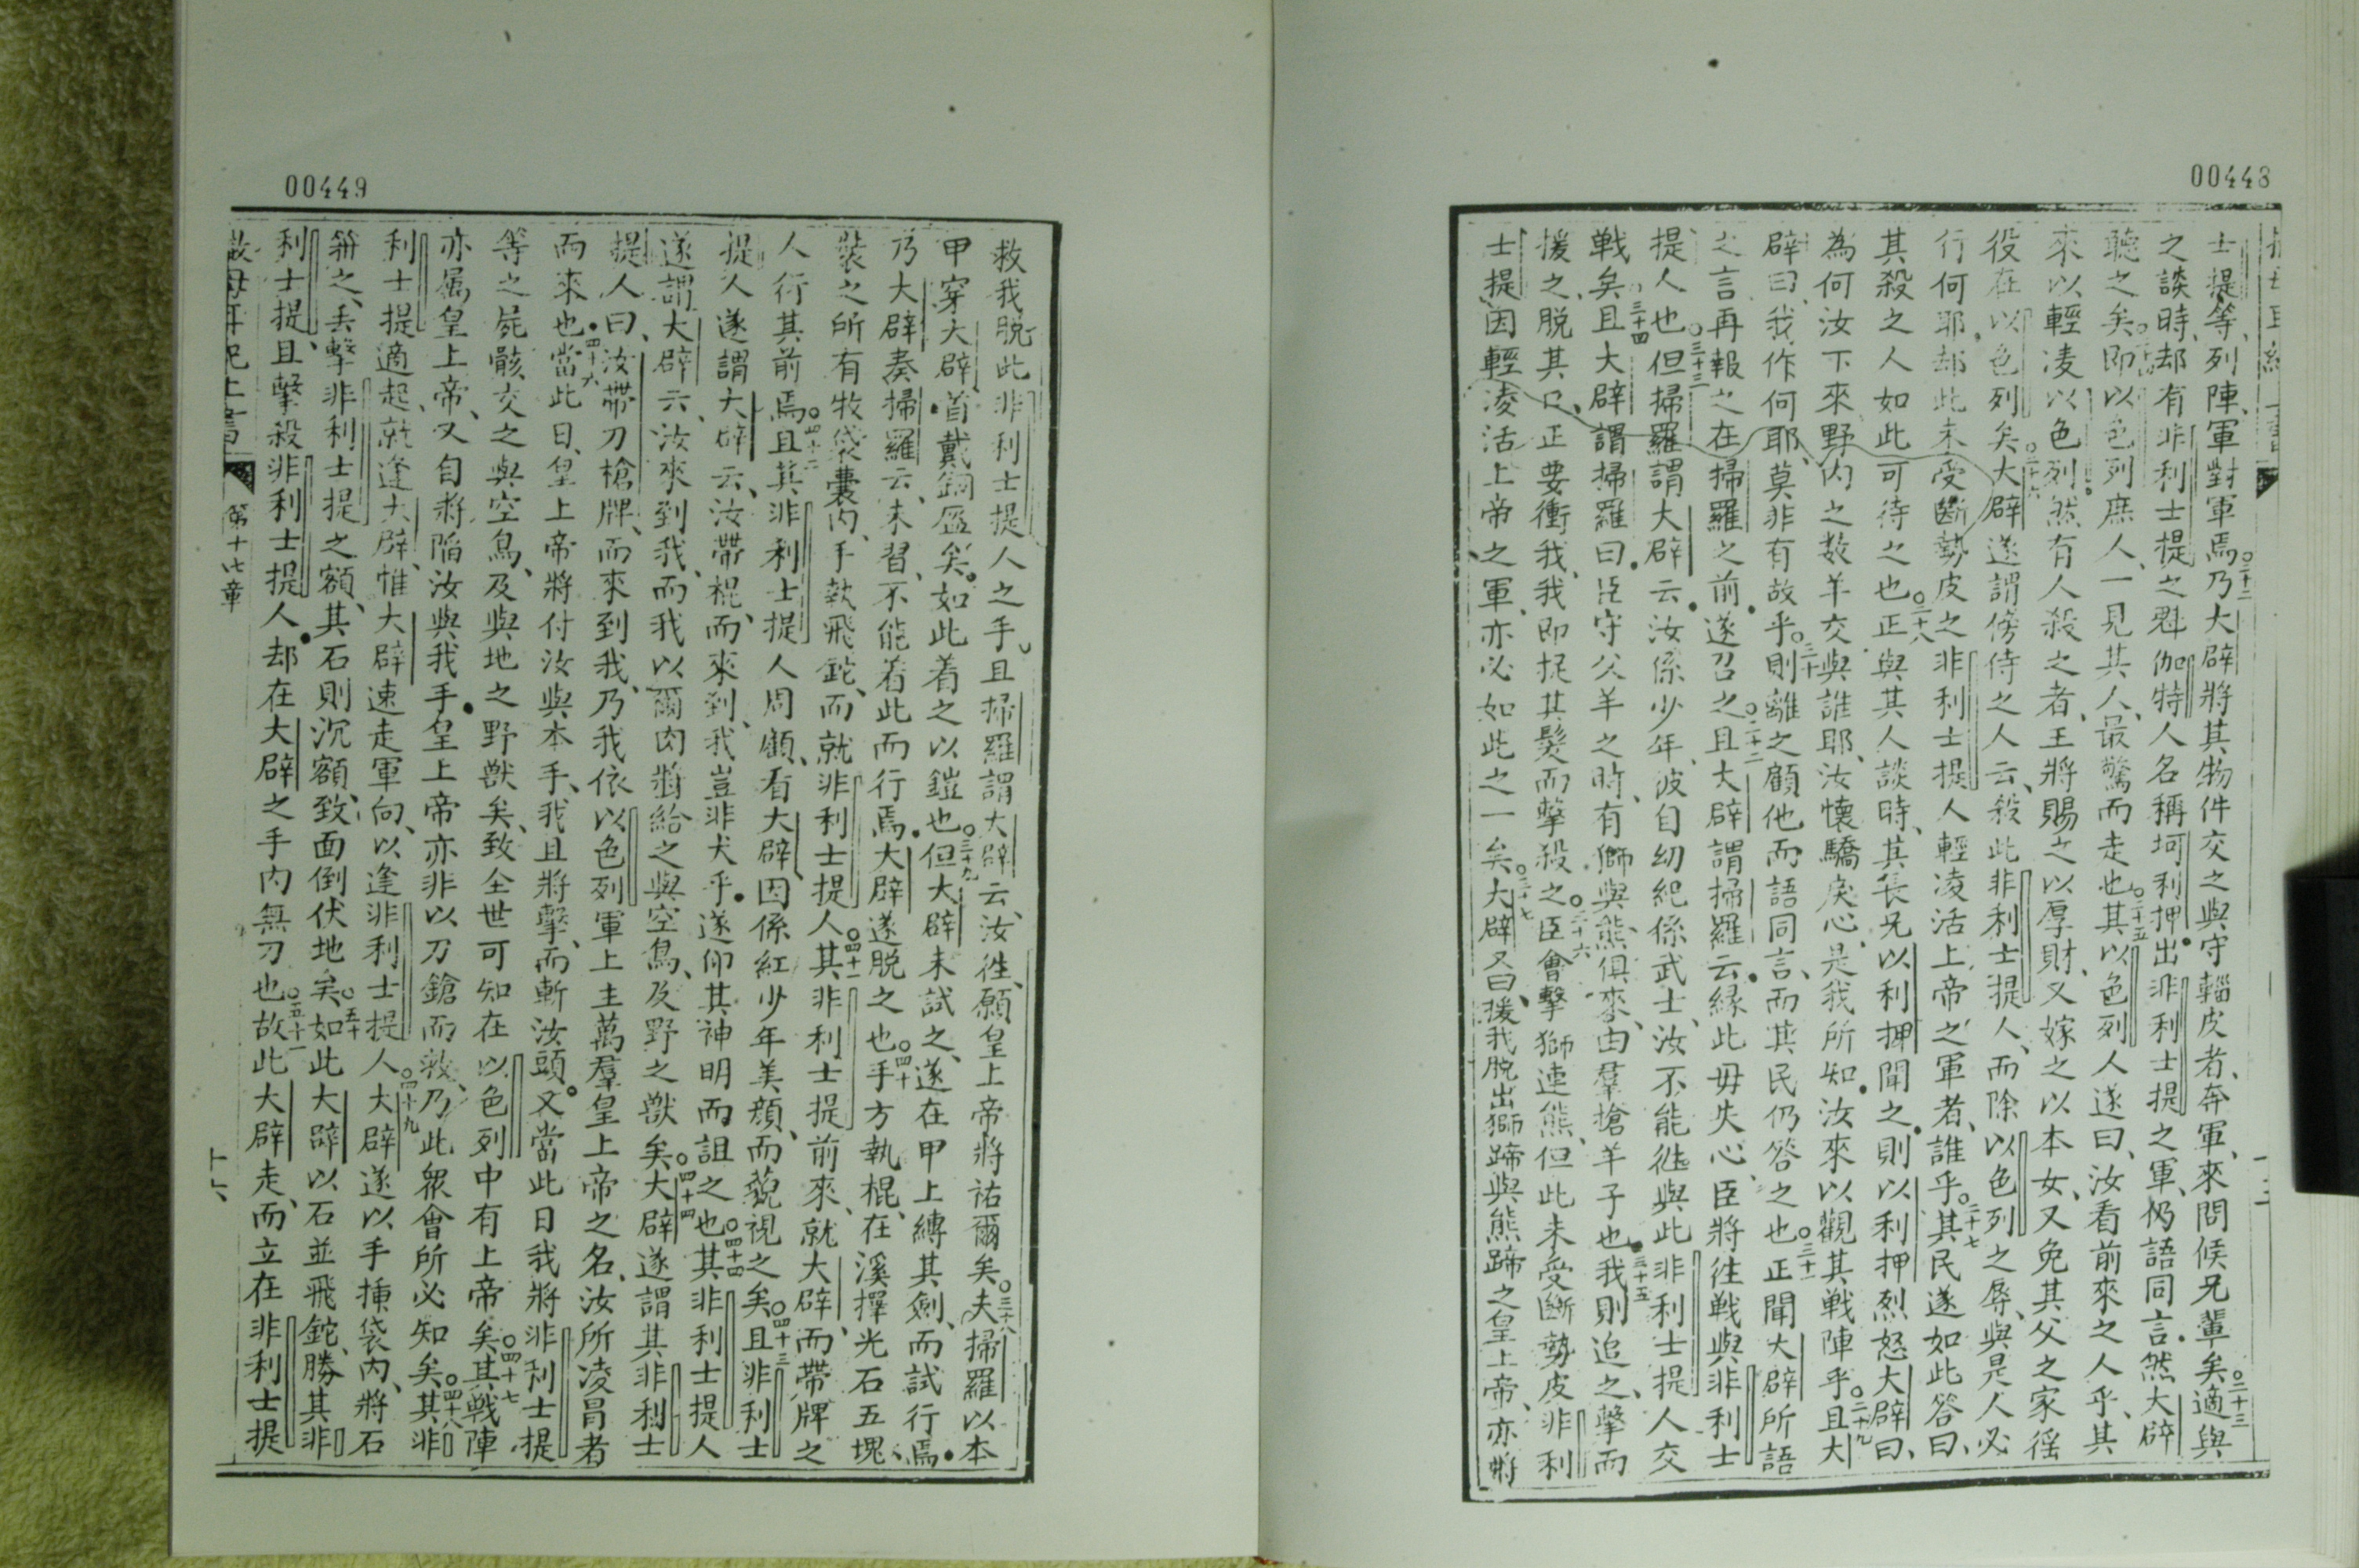 00448
士提等、列陣、軍對軍焉、○二十二乃大辟將其物件交之與守輜皮者、奔軍、來問候兄輩矣。○二十三適與
之談時、却有非利士提之魁伽特人名稱坷利押。出非利士提之軍、仍語同言。然大辟
聽之矣。即以色列庶人、一見其人、最驚而走也。○二十五其以色列人遂曰、汝看前來之人乎、其
來以輕凌以色列。然有人殺之者、王將賜之以厚財、又嫁之以本女、又免其父之家徭
役在以色列矣。○二十六大辟遂謂傍侍之人云、殺此非利士提人、而除以色列之辱、與是人必
行何耶、却此未受斷勢皮之非利士提人輕凌活上帝之軍者、誰乎。○二十七其民遂如此答曰、
其殺之人如此可待之也。○二十八正與其人談時、其長兄以利押聞之。則以利押烈怒大辟曰、
為何汝下來野內之数羊交與誰耶、汝懷驕戾心、是我所知。汝來以觀其戰陣乎。○二十九且大
辟曰、我作何耶、莫非有故乎。○三十則離之顧他、而語同言、而其民仍答之也。○三十一正聞大辟所語
之言再報之在掃羅之前。遂召之。○三十二且大辟謂掃羅云。緣此毋失心、臣將徃戰與非利士
提人也。○三十三但掃羅謂大辟云。汝係少年、彼自幼紀係武士、汝不能徃與此非利士提人交
戰矣。○三十四且大辟謂掃羅曰。臣守父羊之時、有獅與熊俱來、由羣搶羊子也。○三十五我則追之、擊而
援之、脫其口、正要衝我、我即捉其髮而擊殺之。○三十六臣會擊獅連熊、但此未受斷勢皮非利
士提、因輕凌活上帝之軍、亦必如此之一矣。○三十七大辟又曰、援我脫出獅蹄與熊蹄之皇上帝、亦將
00449
救我脫此非利士提人之手。且掃羅謂大辟云、汝徃、願皇上帝將祐爾矣。○三十八夫掃羅以本
甲穿大辟。首戴銅盔矣。如此着之以鎧也。○三十九但大辟未試之、遂在甲上縛其劍、而試行焉。
乃大辟奏掃羅云、未習、不能着此而行焉。大辟遂脫之也。○四十手方執棍、在溪擇光石五塊、
裝之所有牧袋囊內、手執飛鉈、而就非利士提人。○四十一其非利士提前來、就大辟、而帶牌之
人行其前焉。○四十二且其非利士提人周顧、看大辟、因係紅少年美顏、而藐視之矣。○四十三且非利士
提人遂謂大辟云、汝帶棍、而來到、我豈非犬乎。遂仰其神明而詛之也。○四十四其非利士提人
遂謂大辟云、汝來到我、而我以爾肉將給之與空鳥、及野之獸矣。○四十四大辟遂謂其非利士
提人曰、汝帶刀槍牌、而來到我、乃我依以色列軍上主萬羣皇上帝之名、汝所凌冒者
而來也。○四十六當此日、皇上帝將付汝與本手、我且將擊、而斬汝頭。又當此日我將非利士提
等之屍骸交之與空鳥、及與地之野獸矣、致全世可知在以色列中有上帝矣。○四十七其戰陣
亦属皇上帝、又自將陷汝與我手。皇上帝亦非以刀鎗而救、乃此衆會所必知矣。○四十八其非
利士提適起、就逢大辟、惟大辟速走軍向、以逢非利士提人。○四十九大辟遂以手揷袋內、將石
之、丢擊非利士提之額、其石則沉額、致面倒伏地矣。○五十如此大辟以石並飛鉈、勝其非
利士提、且擊殺非利士提人。却在大辟之手內無刀也。○五十一故此大辟走、而立在非利士提
第十七章
十六